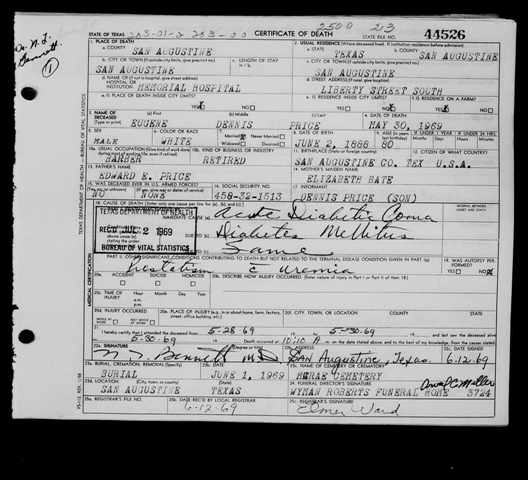 2500 213
STATE OF TEXAS CERTIFICATE OF DEATH STATE FILE NO. 44526
1. PLACE OF DEATH 2. USUAL RESIDENCE (Where deceased lived. If institution: residence before admission)
a. COUNTY SAN AUGUSTINE a. STATE TEXAS b. COUNTY SAN AUGUSTINE
b. CITY OR TOWN (If outside city limits, give precinct no.) c. LENGTH OF STAY c. CITY OR TOWN (If outside city limits, give precinct no.)
SAN AUGUSTINE SAN AUGUSTINE
HOSPITAL OR INSTITUTION MEMORIAL HOSPITAL LIBERTY STREET SOUTH
e. IS PLACE OF DEATH INSIDE CITY LIMITS? e. IS RESIDENCE INSIDE CITY LIMITS? f. IS RESIDENCE ON A FARM?
3. NAME OF DECEASED (Type or print) EUGENE DENNIS PRICE MAY 30, 1969
5. SEX 6. COLOR OR RACE Married Never Married Widowed Divorced
MALE WHITE JUNE 2, 1888 80
10a. USUAL OCCUPATION KIND OF BUSINESS OR INDUSTRY 12. CITIZEN OF WHAT COUNTRY?
BARBER RETIRED SAN AUGUSTINE CO. TEX U.S.A.
13. FATHER'S NAME 14. MOTHER'S MAIDEN NAME
EDWARD E. PRICE ELIZABETH BATE
15. WAS DECEASED EVER IN U.S. ARMED FORCES? 16. SOCIAL SECURITY NO. 17. INFORMANT
NO NONE 458-32-1513 DENNIS PRICE (SON)
18. CAUSE OF DEATH
TEXAS DEPARTMENT OF HEALTH Acute Diabetic Coma
REC'D JUL 2 1969 Diabetes Mellitus
BUREAU OF VITAL STATISTICS Same
PART II. OTHER SIGNIFICANT CONDITIONS CONTRIBUTING TO DEATH BUT NOT RELATED TO THE TERMINAL DISEASE CONDITION GIVEN IN PART I(a)
Prostatism c̄ uremia
20a. ACCIDENT SUICIDE HOMICIDE 20b. DESCRIBE HOW INJURY OCCURRED.
20c. TIME OF INJURY Hour Month Day Year
20d. INJURY OCCURRED 20f. CITY, TOWN, OR LOCATION COUNTY STATE
21. I hereby certify that I attended the deceased from 5-28-69 to 5-30-69
5-30-69 Death occurred at 10:10 A m
SIGNATURE ADDRESS DATE SIGNED
N. J. Bennett M.D. San Augustine, Texas 6-12-69
23a. BURIAL, CREMATION, REMOVAL (Specify) DATE NAME OF CEMETERY OR CREMATORY
BURIAL JUNE 1, 1969 MCRAE CEMETERY
23d. LOCATION (City, town, or county) (State) 24. FUNERAL DIRECTOR'S SIGNATURE
SAN AUGUSTINE TEXAS WYMAN ROBERTS FUNERAL HOME 3724
25a. REGISTRAR'S FILE NO. 25b. DATE REC'D BY LOCAL REGISTRAR 25c. REGISTRAR'S SIGNATURE
6-12-69 Elmer Ward